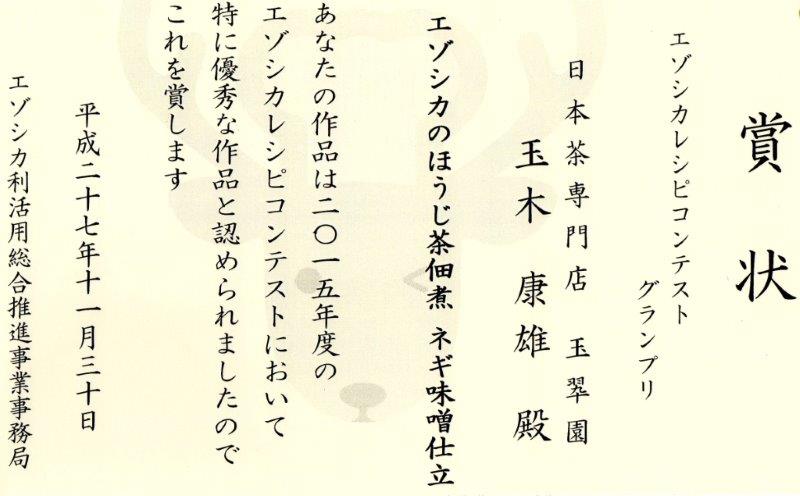 賞状
エゾシカレシピコンテスト
グランプリ
日本茶専門店 玉翠園
玉木 康雄 殿
エゾシカのほうじ茶佃煮 ネギ味噌仕立
あなたの作品は二〇一五年度の
エゾシカレシピコンテストにおいて
特に優秀な作品と認められましたので
これを賞します
平成二十七年十一月三十日
エゾシカ利活用総合推進事業事務局